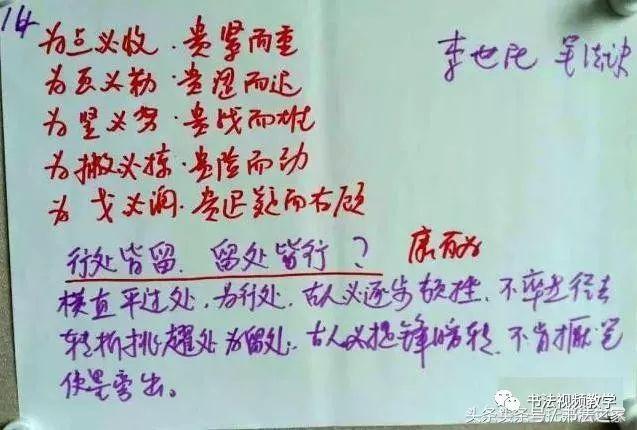 14
为点必收·贵紧而重
李世民 笔法诀
为画必勒·贵涩而迟
为竖必努·贵战而雄
为撇必掠·贵险而劲
为戈必润·贵迟疑而右顾
行处皆留、留处皆行？ 康有为
横直平过处、为行处、古人必逐步顿挫、不卒易径去
转折挑趯处为留处、古人必提锋暗转、不肯撅笔
使墨弯出。
书法视频教学
头条号/书法世家